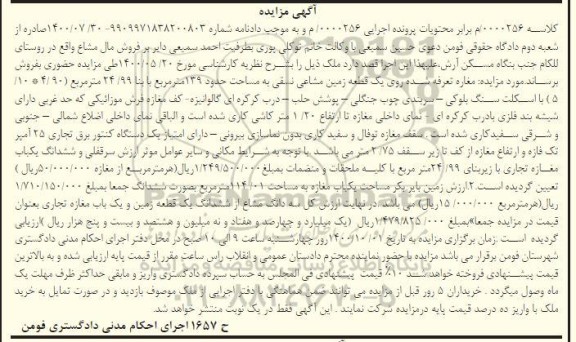 آگهی مزایده
کلاسه ۰۰۰۰۲۵۶/م برابر محتویات پرونده اجرایی ۰۰۰۰۲۵۶/ م و به موجب دادنامه شماره ۹۹۰۹۹۷۱۸۳۸۲۰۰۸۰۳-۱۴۰۰/۰۷/۳۰صادره از
شعبه دوم دادگاه حقوقی فومن دعوی حسین سمیعی با وکالت خانم توکلی پوری بطرفیت احمد سمیعی دایر بر فروش مال مشاع واقع در روستای
للکام جنب بنگاه مسکن آرش،علیهذا این اجرا قصد دارد ملک ذیل را بشرح نظریه کارشناسی مورخ ۱۴۰۰/۰۵/۲۰طی مزایده حضوری بفروش
برساند.مورد مزایده: مغازه تعرفه شده روی یک قطعه زمین مشاعی نسقی به مساحت حدود ۱۳۹مترمربع با بنا ۲۴/۹۹ مترمربع (۴/۹۰ * ۵/۱۰
) با اسکلت سنگ بلوکی – سربندی چوب جنگلی – پوشش حلب – درب کرکره ای گالوانیزه- کف مغازه فرش موزائیکی که حد غربی دارای
شیشه بند فلزی بادرب کرکره ای – نمای داخلی مغازه تا ارتفاع ۱/۲۰ متر کاشی کاری شده است و الباقی نمای داخلی اضلاع شمالی – جنوبی
و شرقی سفیدکاری شده است سقف مغازه توفال و سفید کاری بدون نماسازی بیرونی – دارای امتیاز یک دستگاه کنتور برق تجاری ۲۵ آمپر
تک فازه و ارتفاع مغازه از کف تا زیر سقف ۲/۷۵ متر می باشد. با توجه به شرایط مکانی و سایر عوامل موثر ارزش سرقفلی و ششدانگ یکباب
مغازه تجاری با زیربنای ۲۴/۹۹متر مربع با کلیه ملحقات و منضمات بمبلغ ۱/۲۴۹/۵۰۰/۰۰۰ریال(هرمترمربع از مغازه ۵۰/۰۰۰/۰۰۰ریال )
تعیین گردیده است.۲.ارزش زمین بایر پکر مساحت یکباب مغازه به مساحت ۱۱۴/۰۱مترمربع بصورت ششدانگ جمعا بمبلغ ۱/۷۱۰/۱۵۰/۰۰۰
ریال(هرمترمربع ۱۵/۰۰۰/۰۰۰ریال) می باشد. در نهایت ارزش کل سه دانگ مشاع از ششدانگ یک قطعه زمین و یک باب مغازه تجاری بعنوان
قیمت در مزایده جمعا"بمبلغ ۱/۴۷۹/۸۲۵/۰۰۰ریال (یک میلیارد و چهارصد و هفتاد و نه میلیون و هشتصد و بیست و پنج هزار ریال )ارزیابی
گردیده است .زمان برگزاری مزایده به تاریخ ۱۴۰۰/۱۰/۰۱روز چهارشنبه ساعت ۹ الی ۱۰ صبح در محل دفتر اجرای احکام مدنی دادگستری
شهرستان فومن برقرار می باشد مزایده با حضور نماینده محترم دادستان عمومی و انقلاب راس ساعت مقرر از قیمت پایه ارزیابی شده و به بالاترین
قیمت پیشنهادی فروخته خواهدشد. ۱۰٪ قیمت پیشنهادی فی المجلس به حساب سپرده دادگستری واریز و مابقی حداکثر ظرف مهلت یک
ماه وصول میگردد . خریداران ۵ روز قبل از مزایده می توانند ضمن هماهنگی با دفتر اجرایی از ملک موصوف بازدید و در صورت تمایل به خرید
ملک با واریز ده درصد قیمت پایه درمزایده شرکت نمایند . این آگهی فقط در یک نوبت منتشر خواهد شد.
ح ۱۶۵۷ اجرای احکام مدنی دادگستری فومن